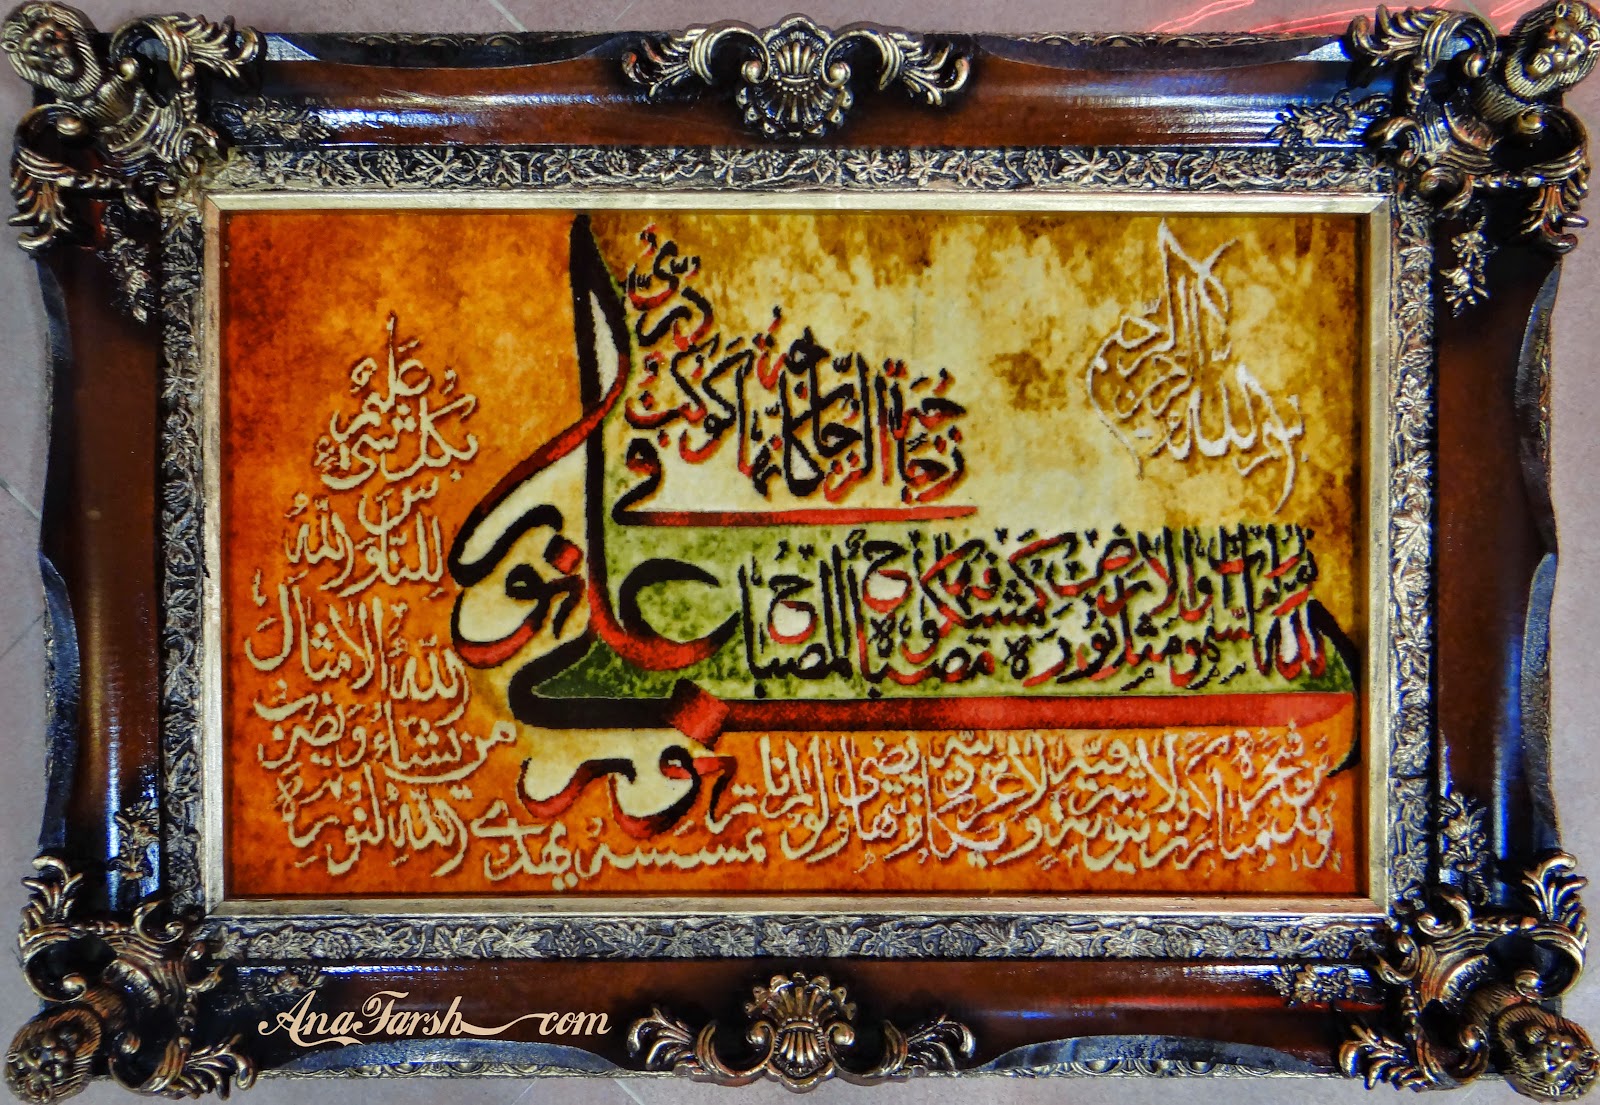 بسم الله الرحمن الرحيم
الله نور السموات والارض مثل نوره كمشكوة فيها مصباح المصباح
في زجاجة الزجاجة كانها كوكب دري
يوقد من شجرة مباركة زيتونة لا شرقية ولا غربية يكاد زيتها يضيء ولو لم تمسسه نار
نور على نور
يهدي الله لنوره
من يشاء ويضرب
الله الامثال
للناس والله
بكل شيء
عليم
AnaFarsh.com